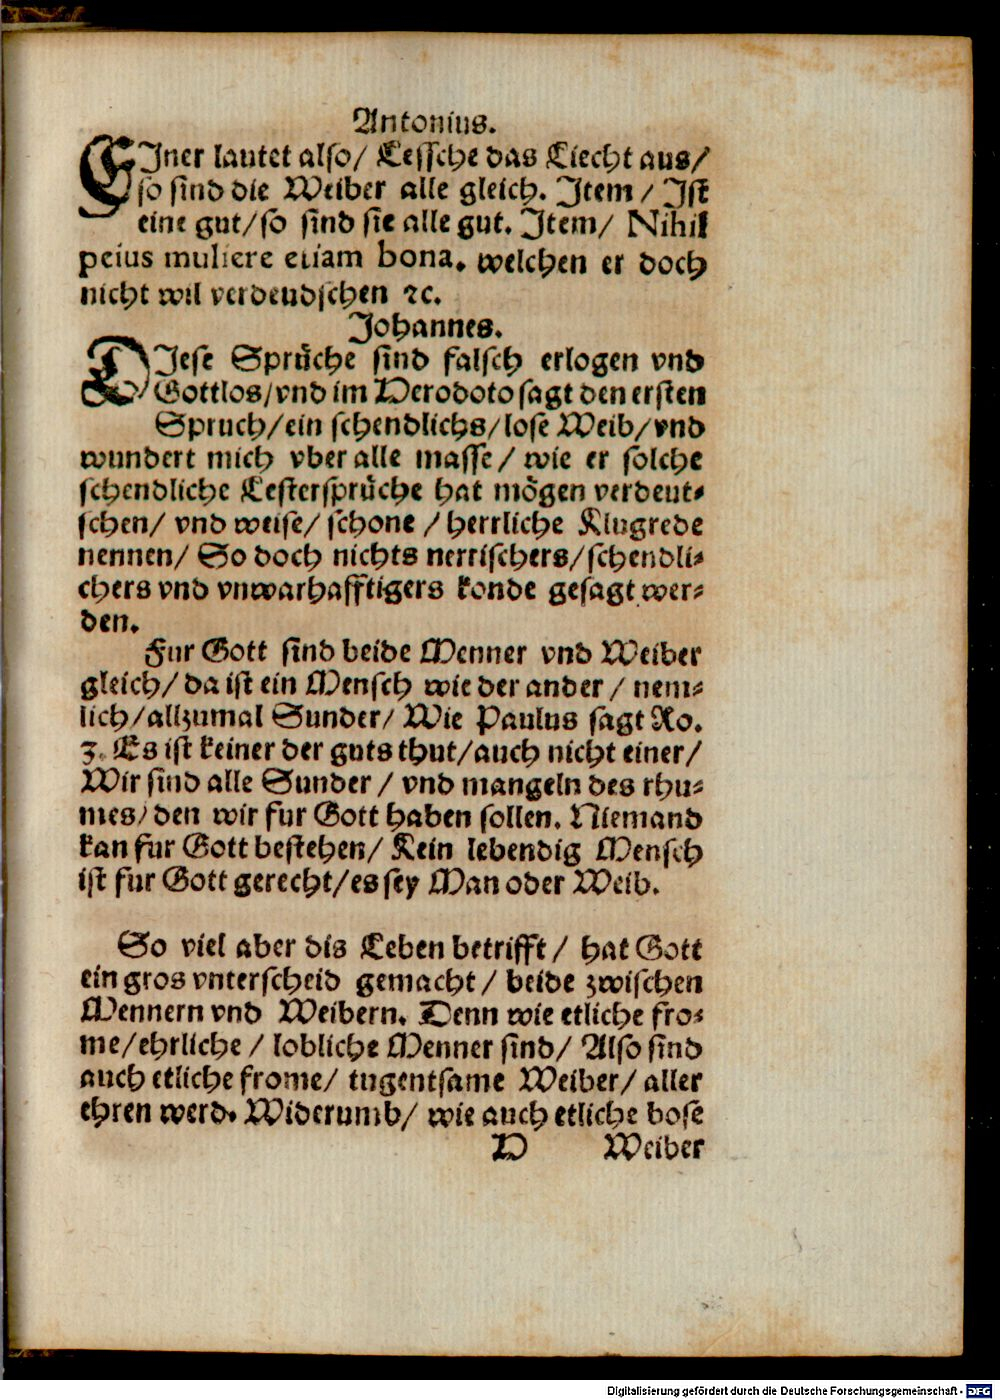 Antonius.
EJner lautet also/ Lessche das Liecht aus/
so sind die Weiber alle gleich. Jtem/ Jst
eine gut/so sind sie alle gut. Jtem/ Nihil
peius muliere etiam bona. welchen er doch
nicht wil verdeudschen ꝛc.
Johannes.
DJese Sprüche sind falsch erlogen vnd
Gottlos/vnd im Herodoto sagt den ersten
Spruch/ein schendlichs/lose Weib/vnd
wundert mich vber alle masse/ wie er solche
schendliche Lestersprüche hat mögen verdeut-
schen/ vnd weise/ schone / herrliche Klugrede
nennen/ So doch nichts nerrischers/schendli-
chers vnd vnwarhafftigers konde gesagt wer-
den.
Fur Gott sind beide Menner vnd Weiber
gleich/ da ist ein Mensch wie der ander/ nem-
lich/allzumal Sunder/ Wie Paulus sagt Ro.
3. Es ist keiner der guts thut/auch nicht einer/
Wir sind alle Sunder / vnd mangeln des rhu-
mes/ den wir fur Gott haben sollen. Niemand
kan fur Gott bestehen/ Kein lebendig Mensch
ist fur Gott gerecht/es sey Man oder Weib.
So viel aber dis Leben betrifft/ hat Gott
ein gros vnterscheid gemacht/ beide zwischen
Mennern vnd Weibern. Denn wie etliche fro-
me/ehrliche/ lobliche Menner sind/ Also sind
auch etliche frome/ tugentsame Weiber/ aller
ehren werd. Widerumb/ wie auch etliche bose
H Weiber
Digitalisierung gefördert durch die Deutsche Forschungsgemeinschaft - DFG